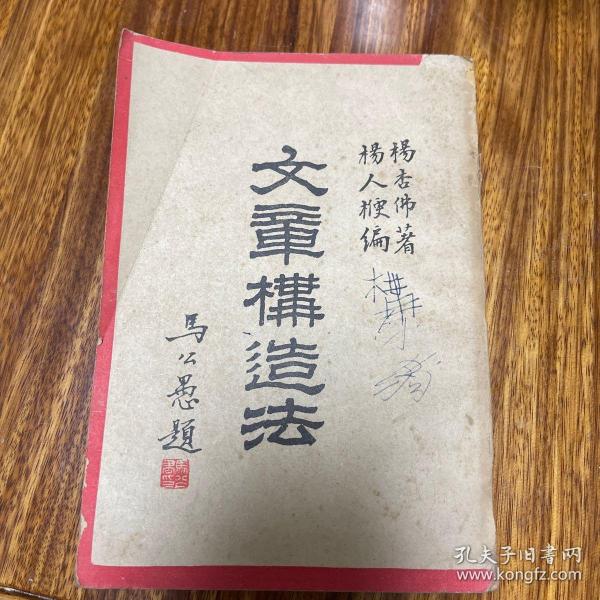 楊杏佛著
楊人楩編
文章構造法
馬公愚題
孔夫子旧書网
www.kongfz.com